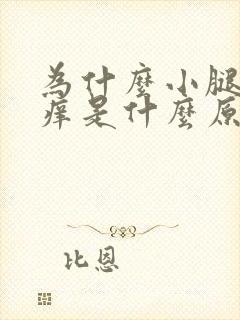 為什麼小腿
痒是什麼原
比恩